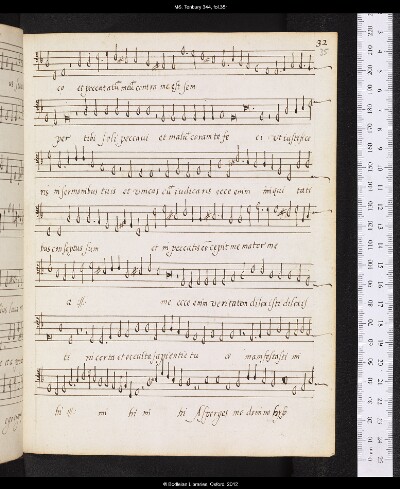 MS. Tenbury 344, fol.35r
32
35
co et peccatu meu contra me est sem
per tibi soli peccavi et malu coram te fe ci ut iustifice
ris in sermonibus tuis et vincas cu iudicaris ecce enim iniqui tati
bus conseptus sum et in peccatis concepit me mater me
a me ecce enim veritatem dilexisti dilexis
ti incerta et occulta sapientie tu e manifestasti mi
hi mi hi mi hi Asperges me domine hyso
© Bodleian Libraries, Oxford, 2012